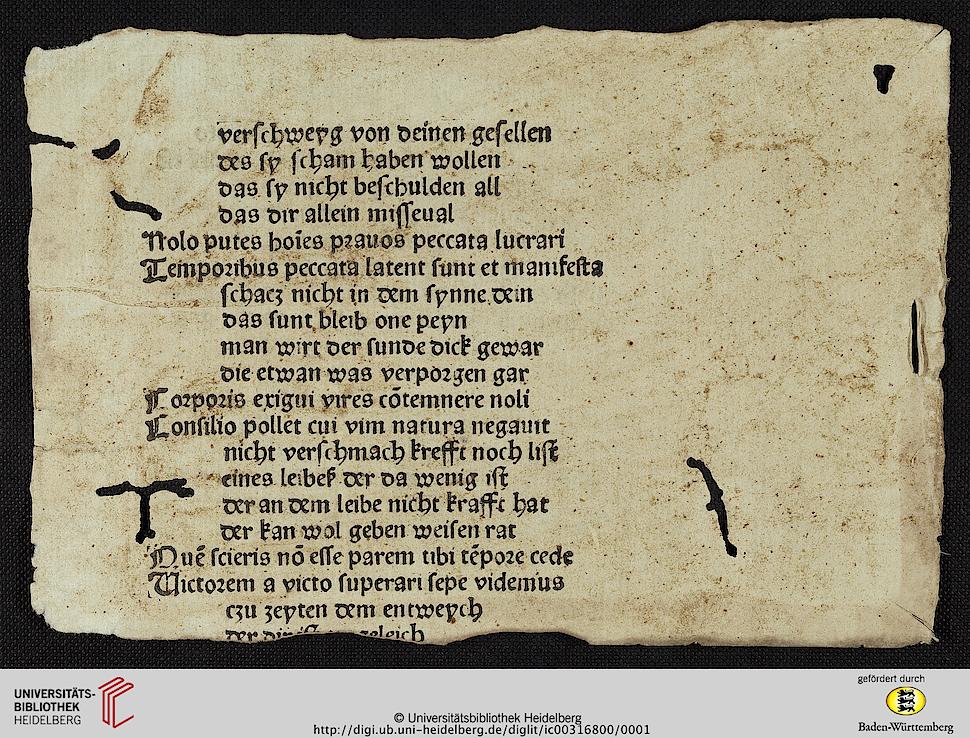 verſchweyg von deinen geſellen
des ſy ſcham haben wollen
das ſy nicht beſchulden all
das dir allein miſſeual
Nolo putes hoīes prauos peccata lucrari
Temporibus peccata latent ſunt et manifeſta
ſchacz nicht in dem ſynne dein
das ſunt bleib one peyn
man wirt der ſunde dick gewar
die etwan was verporgen gar
Corporis exigui vires cōtemnere noli
Conſilio pollet cui vim natura negauit
nicht verſchmach krefft noch liſt
eines leibeſ der da wenig iſt
der an dem leibe nicht krafft hat
der kan wol geben weiſen rat
Quē ſcieris nō eſſe parem tibi tēpore cede
Victorem a victo ſuperari ſepe videmus
czu zeyten dem entweych
der geleich
UNIVERSITÄTS-
BIBLIOTHEK
HEIDELBERG
© Universitätsbibliothek Heidelberg
http://digi.ub.uni-heidelberg.de/diglit/ic00316800/0001
gefördert durch
Baden-Württemberg